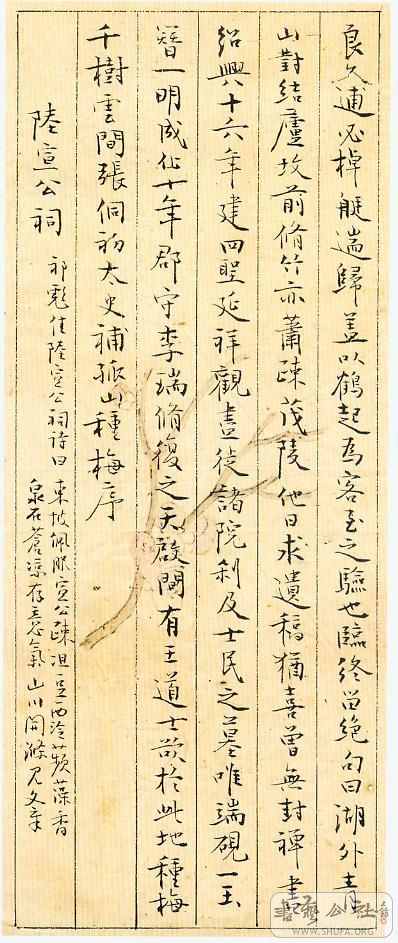 良久逋必棹艇遄歸蓋以鶴起為客至之驗也臨終留絕句曰湖外青
山對結廬墳前脩竹亦蕭疎茂陵他日求遺稿猶喜曾無封禪書
紹興十六年建四聖延祥觀盡徙諸院剎及士民之墓唯端硯一玉
簪一明成化十年郡守李瑞脩復之天啟間有王道士欲於此地種梅
千樹雲間張侗初太史補孤山種梅序
陸宣公祠
祁彪佳陸宣公祠詩曰東坡佩服宣公疎俎豆西泠蘋藻香
泉石蒼涼存意氣山川開滌見文章
書藝公社
WWW.SHUFA.ORG